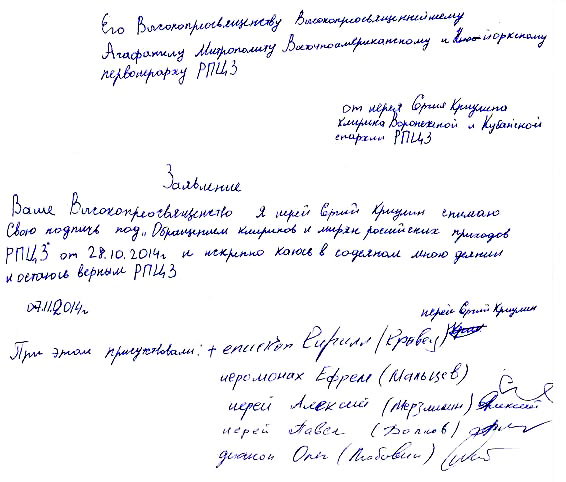 Его Высокопреосвященству Высокопреосвященнейшему
Агафангелу Митрополиту Восточноамериканскому и Нью-йоркскому
первоиерарху РПЦЗ
от иерея Сергия Крицина
клирика Воронежской и Кубанской
епархии РПЦЗ
Заявление
Ваше Высокопреосвященство я иерей Сергий Крицин снимаю
Свою подпись под „Обращением клириков и мирян российских приходов
РПЦЗ" от 28.10.2014г и искренно каюсь в содеяном мною деянии
и остаюсь верным РПЦЗ
07.11.2014г
иерей Сергий Крицин
При этом присутствовали: + епископ Кирилл (Кравец)
иеромонах Ефрем (Мальцев)
иерей Алексий (Мерзликин) Алексий
иерей Павел
диакон Олег